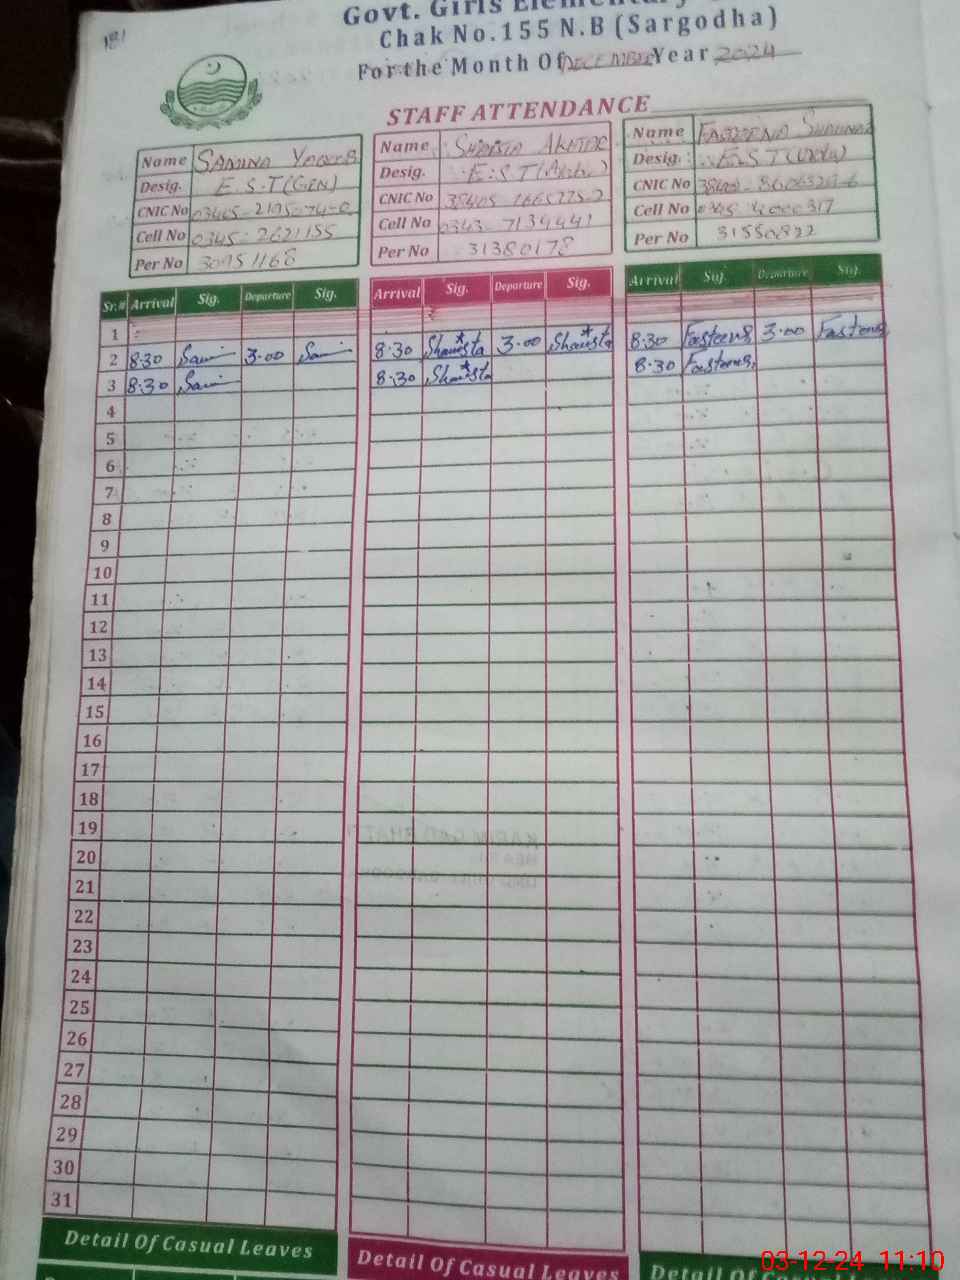 181
Govt. Girls Elementary
Chak No.155 N.B (Sargodha)
For the Month Of DECEMBER Year 2024
STAFF ATTENDANCE
Name SAMINA
Desig. E.S.T(GEN)
CNIC No
Cell No 0345-2621155
Per No 30951168
Name SHAISTA AKHTAR
Desig. E.S.T
CNIC No
Cell No 0343-7139441
Per No 31380178
Name
Desig. E.S.T
CNIC No
Cell No
Per No 31550822
Sr.# Arrival Sig. Departure Sig. Arrival Sig. Departure Sig. Arrival Sig. Departure Sig.
1
2 8-30 Sami 3-00 Sami 8-30 Shaista 3-00 Shaista 8-30 3-00
3 8-30 Sami 8-30 Shaista 8-30
4
5
6
7
8
9
10
11
12
13
14
15
16
17
18
19
20
21
22
23
24
25
26
27
28
29
30
31
Detail Of Casual Leaves Detail Of Casual Leaves Detail Of
03-12-24 11:10